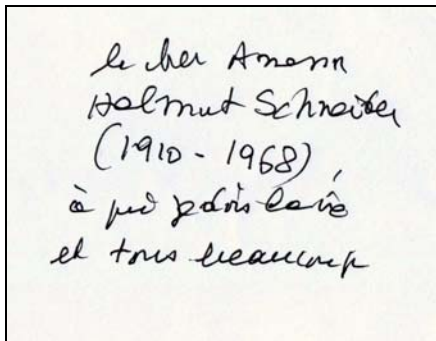 le cher
Helmut Schreiber
(1910 - 1968),
à qui je dois la vie
et tous beaucoup